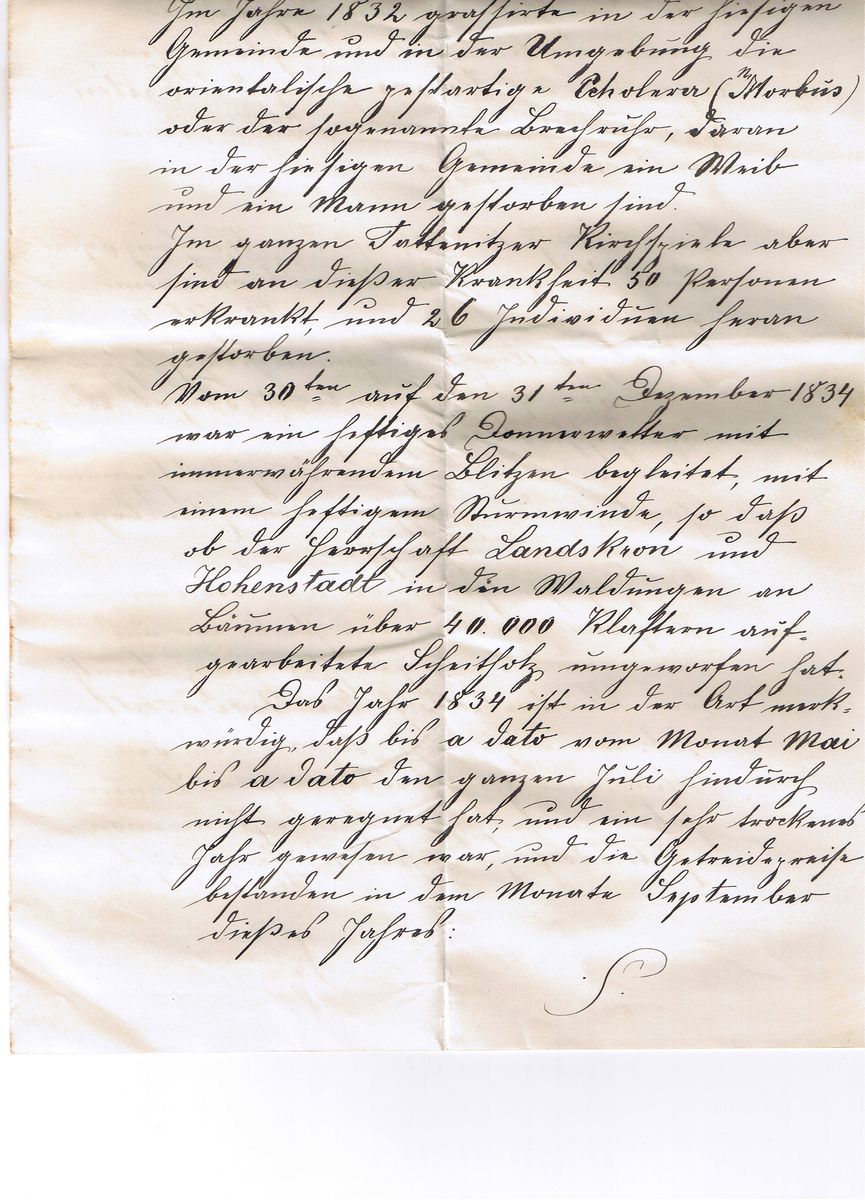 Im Jahre 1832 grassirte in der hiesigen
Gemeinde und in der Umgebung die
orientalische pestartige Cholera (Morbus)
oder der sogenannte Brechruhr, daran
in der hiesigen Gemeinde ein Weib
und ein Mann gestorben sind.
Im ganzen Tattenitzer Kirchspiele aber
sind an dießer Krankheit 50 Personen
erkrankt, und 26 Individuen heran
gestorben.
Vom 30ten auf den 31ten Dezember 1834
war ein heftiges Donnerwetter mit
immerwährendem Blitzen begleitet, mit
einem heftigem Sturmwinde, so daß
ob der Herrschaft Landskron und
Hohenstadt in den Waldungen an
Bäumen über 40.000 Klaftern auf-
gearbeitete Scheitholz umgeworfen hat.
Das Jahr 1834 ist in der Art merk-
würdig, daß bis a dato vom Monat Mai
bis a dato den ganzen Juli hindurch
nicht geregnet hat, und ein sehr trockenes
Jahr gewesen war, und die Getreidepreise
bestanden in dem Monate September
dießes Jahres: